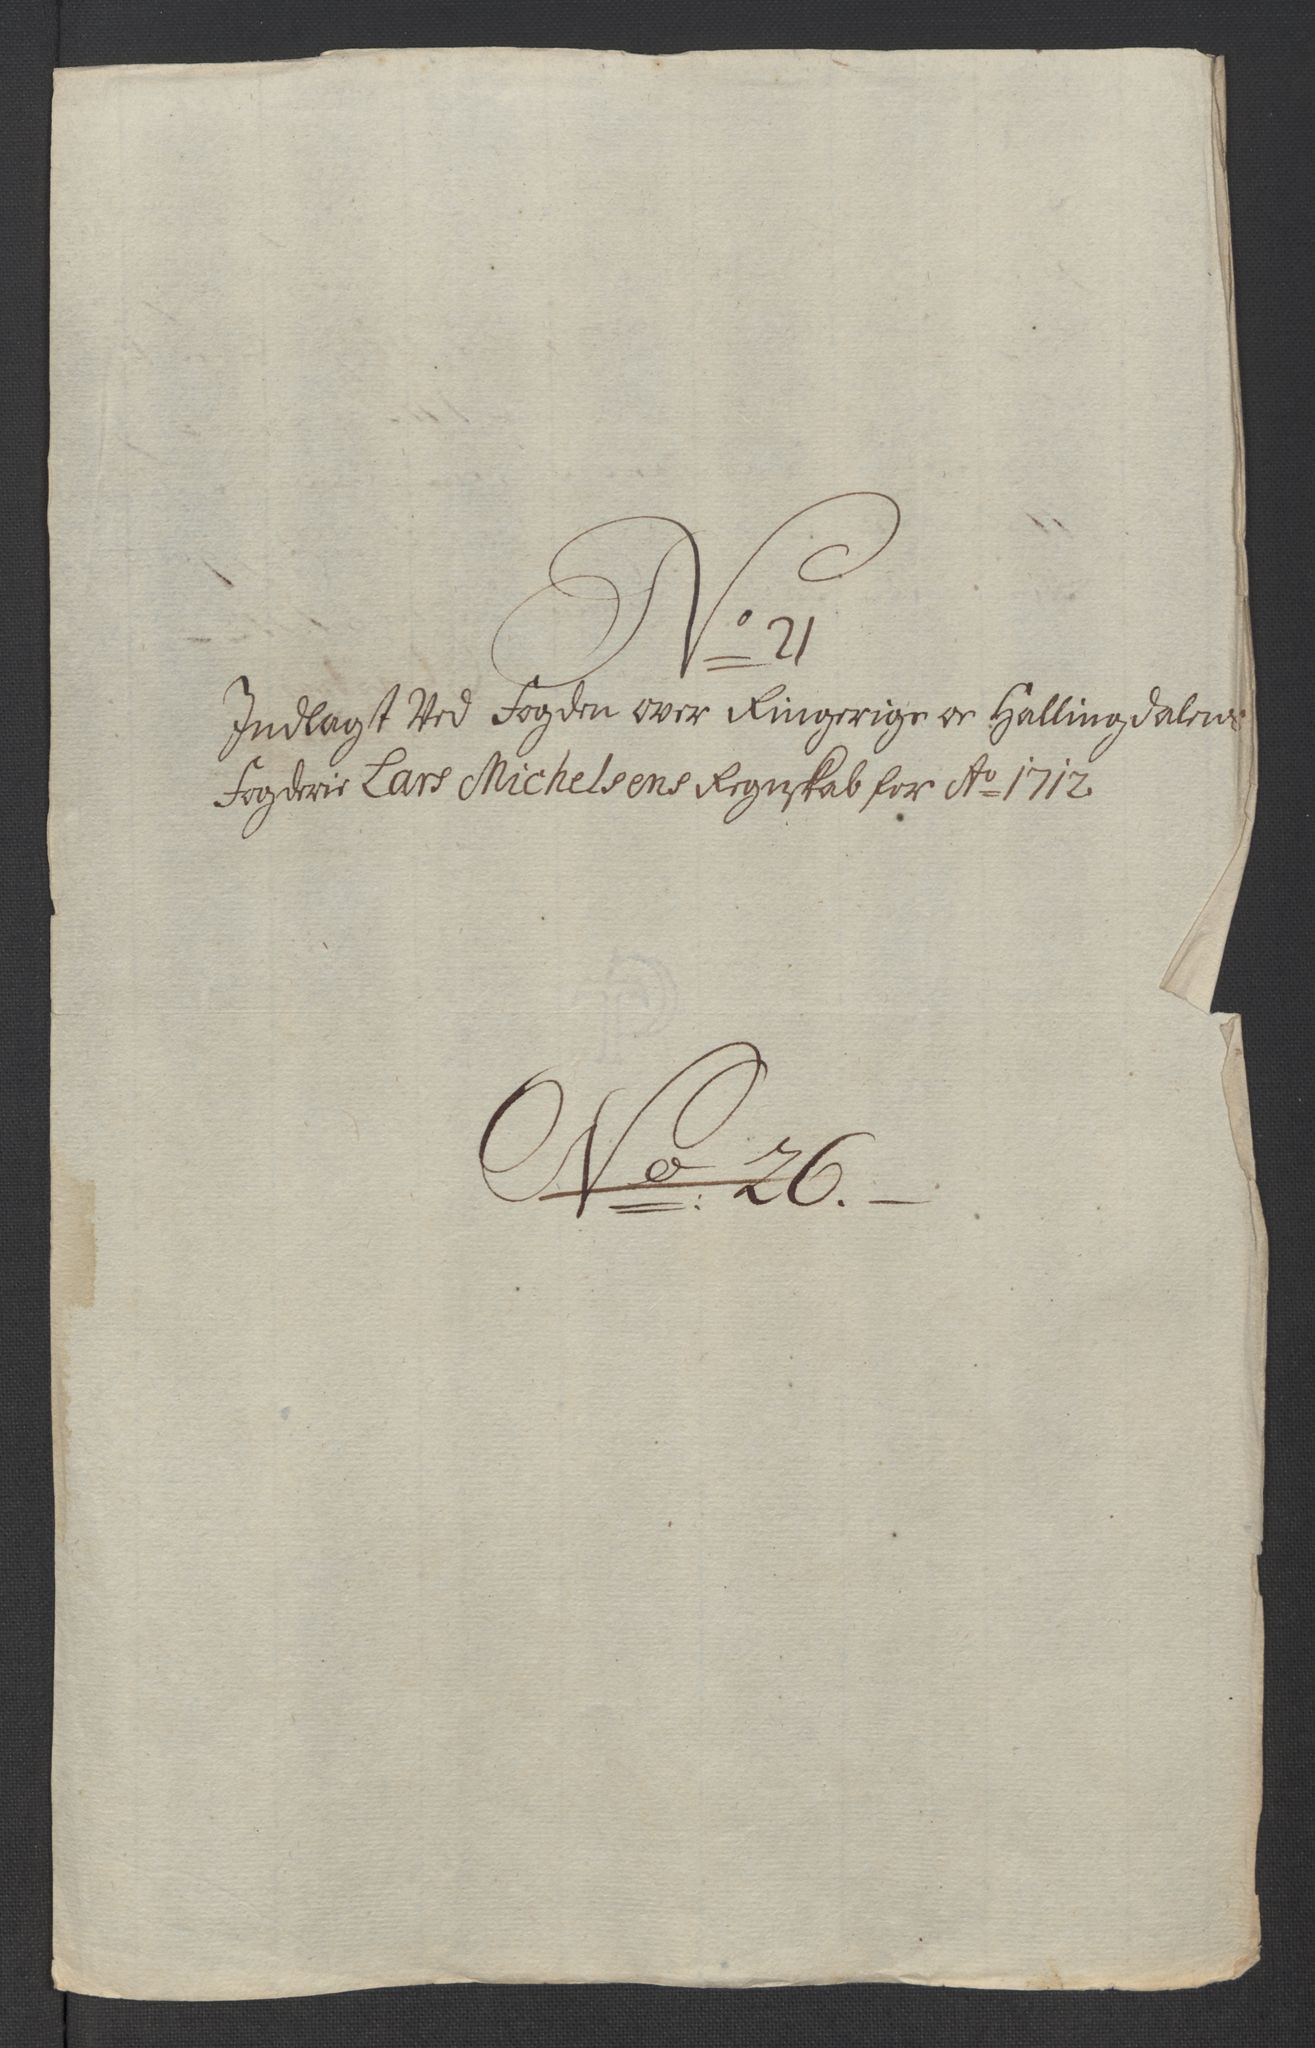 No 21
Indlagt Ved Fogden over Ringerige oc Hallingdalens
Fogderie Lars Michelsens Regnskab for Ao 1712.
No: 26.